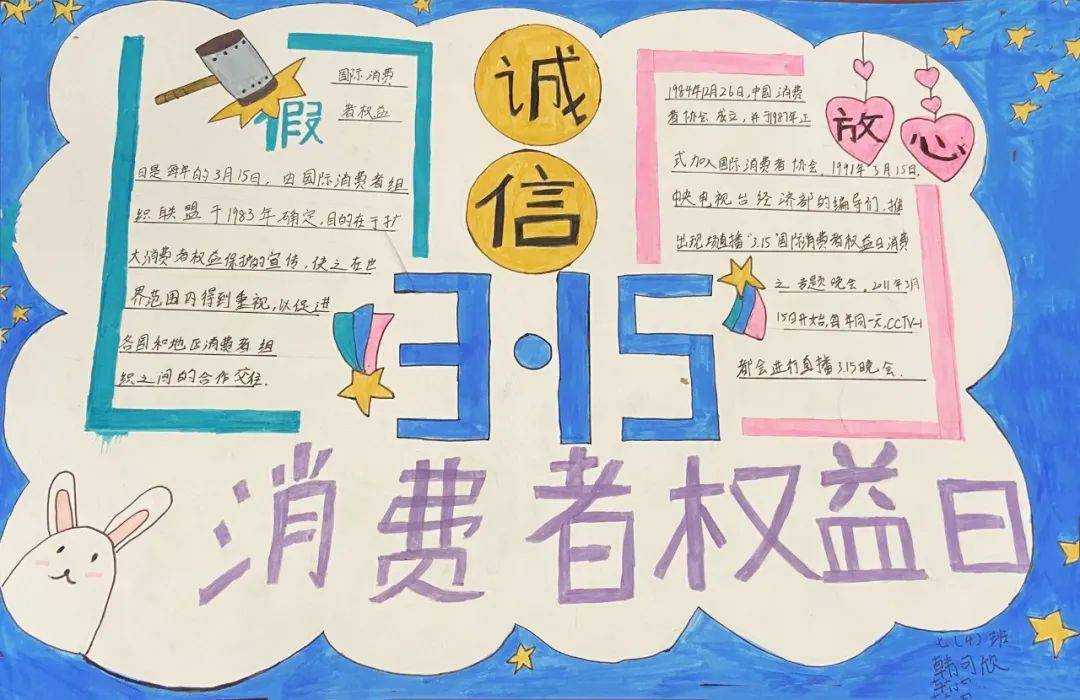 假
国际消费
者权益
日是每年的3月15日，由国际消费者组
织联盟于1983年确定，目的在于扩
大消费者权益保护的宣传，使之在世
界范围内得到重视，以促进
各国和地区消费者组
织之间的合作交往．
诚
信
3·15
1984年12月26日，中国消费
者协会成立，并于1987年正
式加入国际消费者协会．1991年3月15日，
中央电视台经济部的编导们，推
出现场直播“3.15”国际消费者权益日消费
之专题晚会．2011年3月
15日开始，每年同一天，CCTV-1
都会进行直播3.15晚会．
放
心
消费者权益日
七(4)班